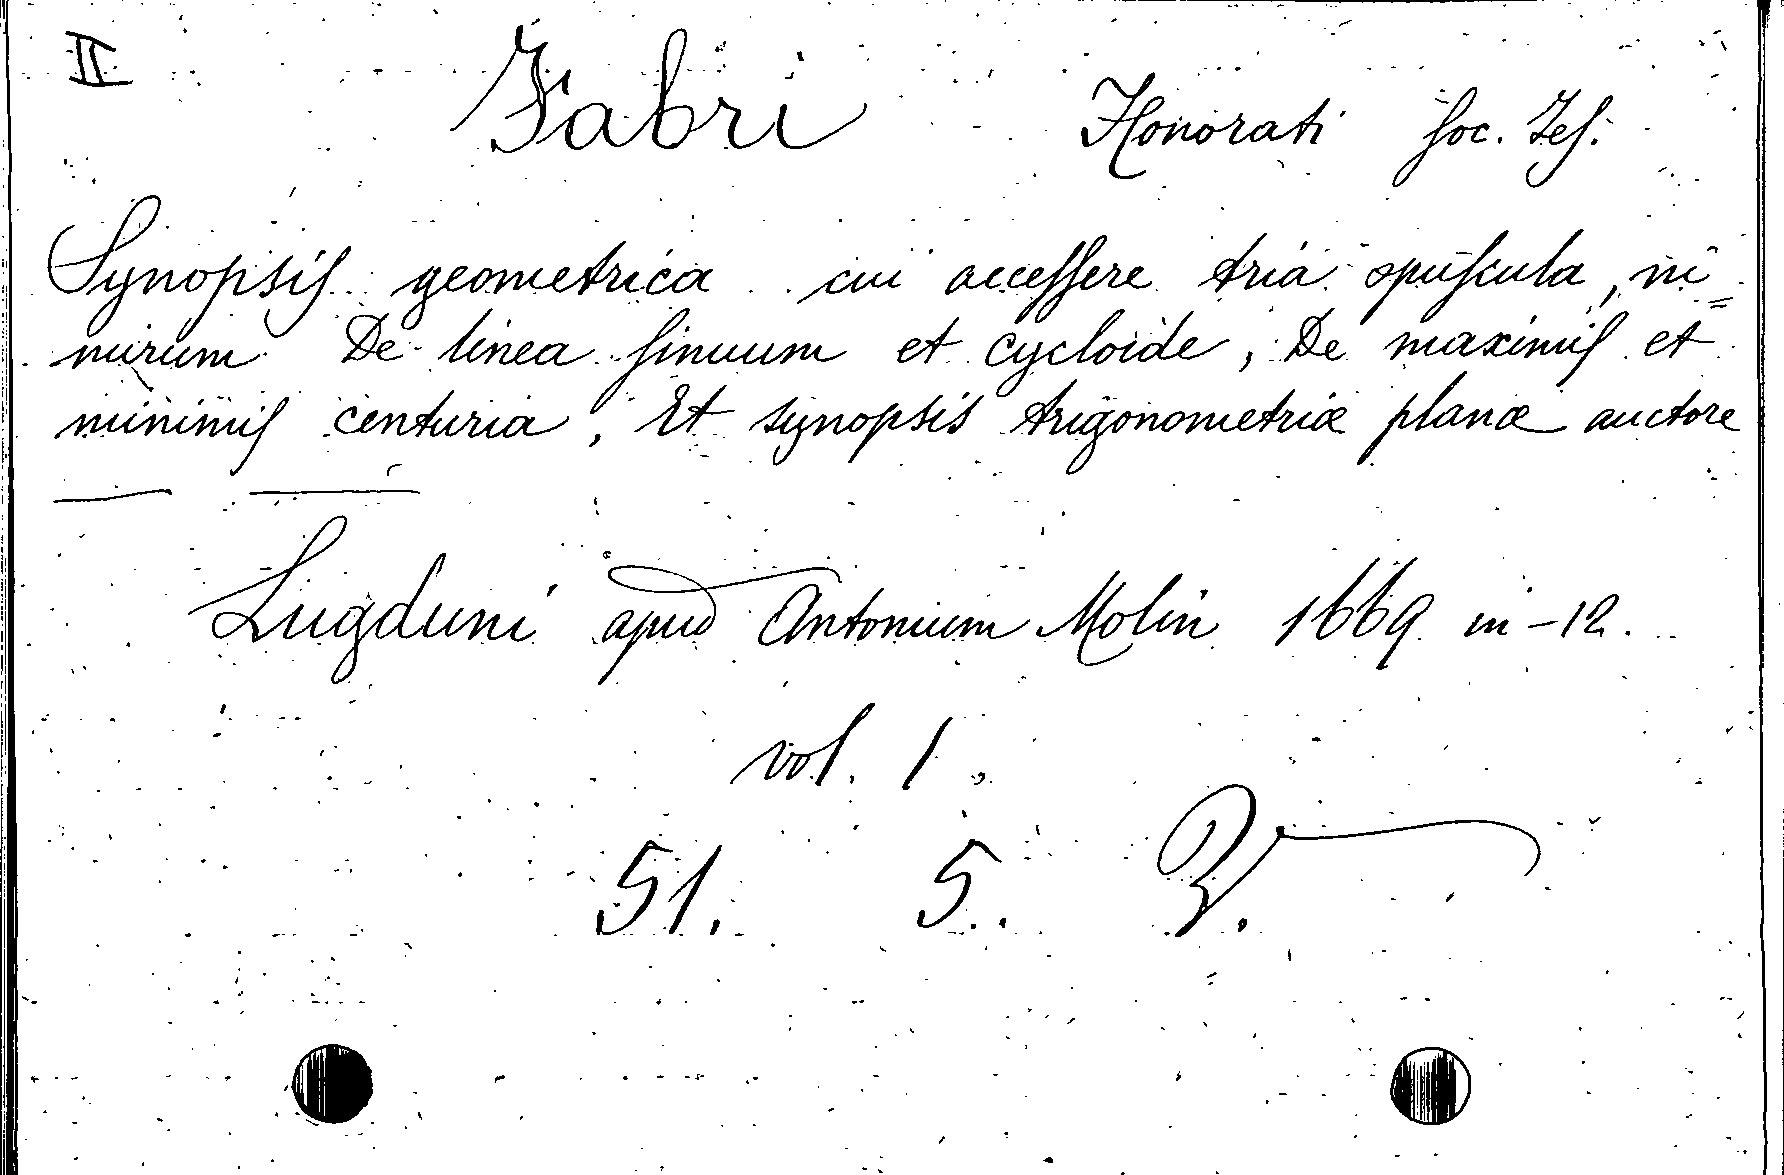 II Fabri Honorati Soc. Jes.
Synopsis geometrica cui accessere tria opuscula, ni=
mirum De linea sinuum et cycloide, De maximis et
minimis centuria, Et synopsis trigonometriæ planæ auctore
— —
Lugduni apud Antonium Molin 1669 in-12.
vol. 1.
51. 5.